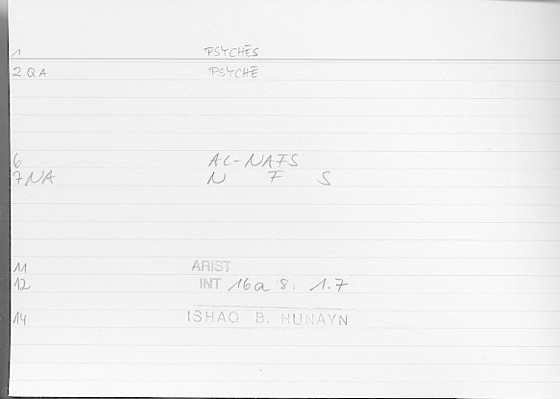 1 PSYCHĒS
2 QA PSYCHĒ
6 AL-NAFS
7 NA N F S
11 ARIST
12 INT 16a 8. 1.7
14 ISHAQ B. HUNAYN